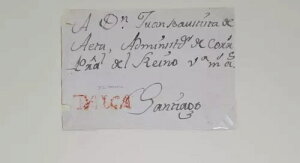 A Dn. Juan Bautista de
Aeta, Administdor. de Corrs.
Pral. del Reino ms. as.
TALCA Santiago